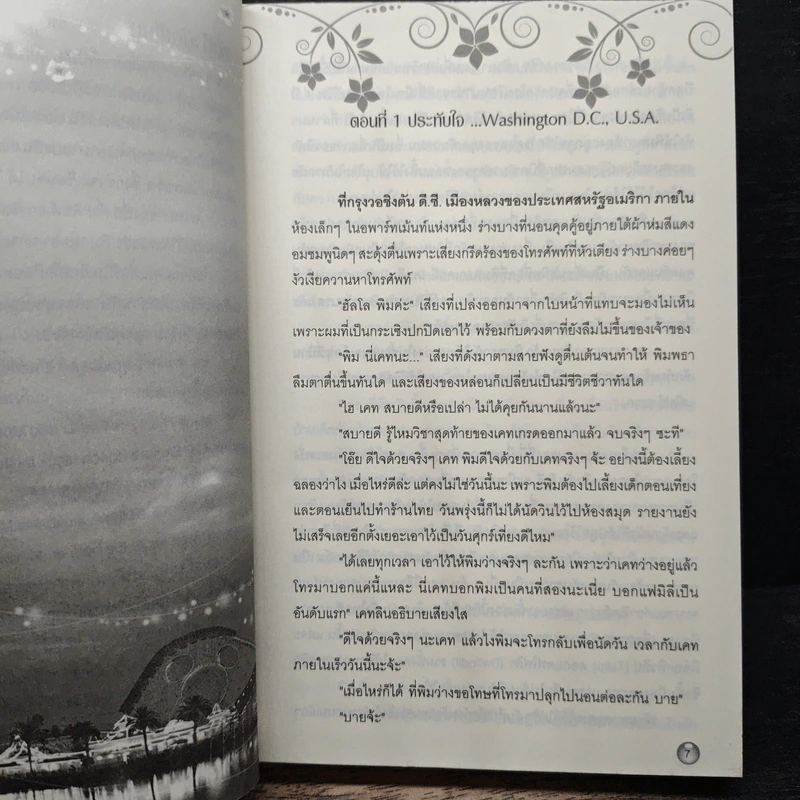 ตอนที่ 1 ประทับใจ ...Washington D.C., U.S.A.
ที่กรุงวอชิงตัน ดี.ซี. เมืองหลวงของประเทศสหรัฐอเมริกา ภายใน
ห้องเล็กๆ ในอพาร์ทเม้นท์แห่งหนึ่ง ร่างบางที่นอนคุดคู้อยู่ภายใต้ผ้าห่มสีแดง
อมชมพูนิดๆ สะดุ้งตื่นเพราะเสียงกรีดร้องของโทรศัพท์ที่หัวเตียง ร่างบางค่อยๆ
งัวเงียควานหาโทรศัพท์
"ฮัลโล พิมค่ะ" เสียงที่เปล่งออกมาจากใบหน้าที่แทบจะมองไม่เห็น
เพราะผมที่เป็นกระเซิงปกปิดเอาไว้ พร้อมกับดวงตาที่ยังลืมไม่ขึ้นของเจ้าของ
"พิม นี่เคทนะ..." เสียงที่ดังมาตามสายฟังดูตื่นเต้นจนทำให้ พิมพธา
ลืมตาตื่นขึ้นทันใด และเสียงของหล่อนก็เปลี่ยนเป็นมีชีวิตชีวาทันใด
"ไฮ เคท สบายดีหรือเปล่า ไม่ได้คุยกันนานแล้วนะ"
"สบายดี รู้ไหมวิชาสุดท้ายของเคทเกรดออกมาแล้ว จบจริงๆ ซะที"
"โอ๊ย ดีใจด้วยจริงๆ เคท พิมดีใจด้วยกับเคทจริงๆ จ้ะ อย่างนี้ต้องเลี้ยง
ฉลองว่าไง เมื่อไหร่ดีล่ะ แต่คงไม่ใช่วันนี้นะ เพราะพิมต้องไปเลี้ยงเด็กตอนเที่ยง
และตอนเย็นไปทำร้านไทย วันพรุ่งนี้ก็ไม่ได้นัดวินไว้ไปห้องสมุด รายงานยัง
ไม่เสร็จเลยอีกตั้งเยอะเอาไว้เป็นวันศุกร์เที่ยงดีไหม"
"ได้เลยทุกเวลา เอาไว้ให้พิมว่างจริงๆ ละกัน เพราะว่าเคทว่างอยู่แล้ว
โทรมาบอกแค่นี้แหละ นี่เคทบอกพิมเป็นคนที่สองนะเนี่ย บอกแฟมิลี่เป็น
อันดับแรก" เคทลินอธิบายเสียงใส
"ดีใจด้วยจริงๆ นะเคท แล้วไงพิมจะโทรกลับเพื่อนัดวัน เวลากับเคท
ภายในเร็ววันนี้นะจ้ะ"
"เมื่อไหร่ก็ได้ ที่พิมว่างขอโทษที่โทรมาปลุกไปนอนต่อละกัน บาย"
"บายจ้ะ"
7